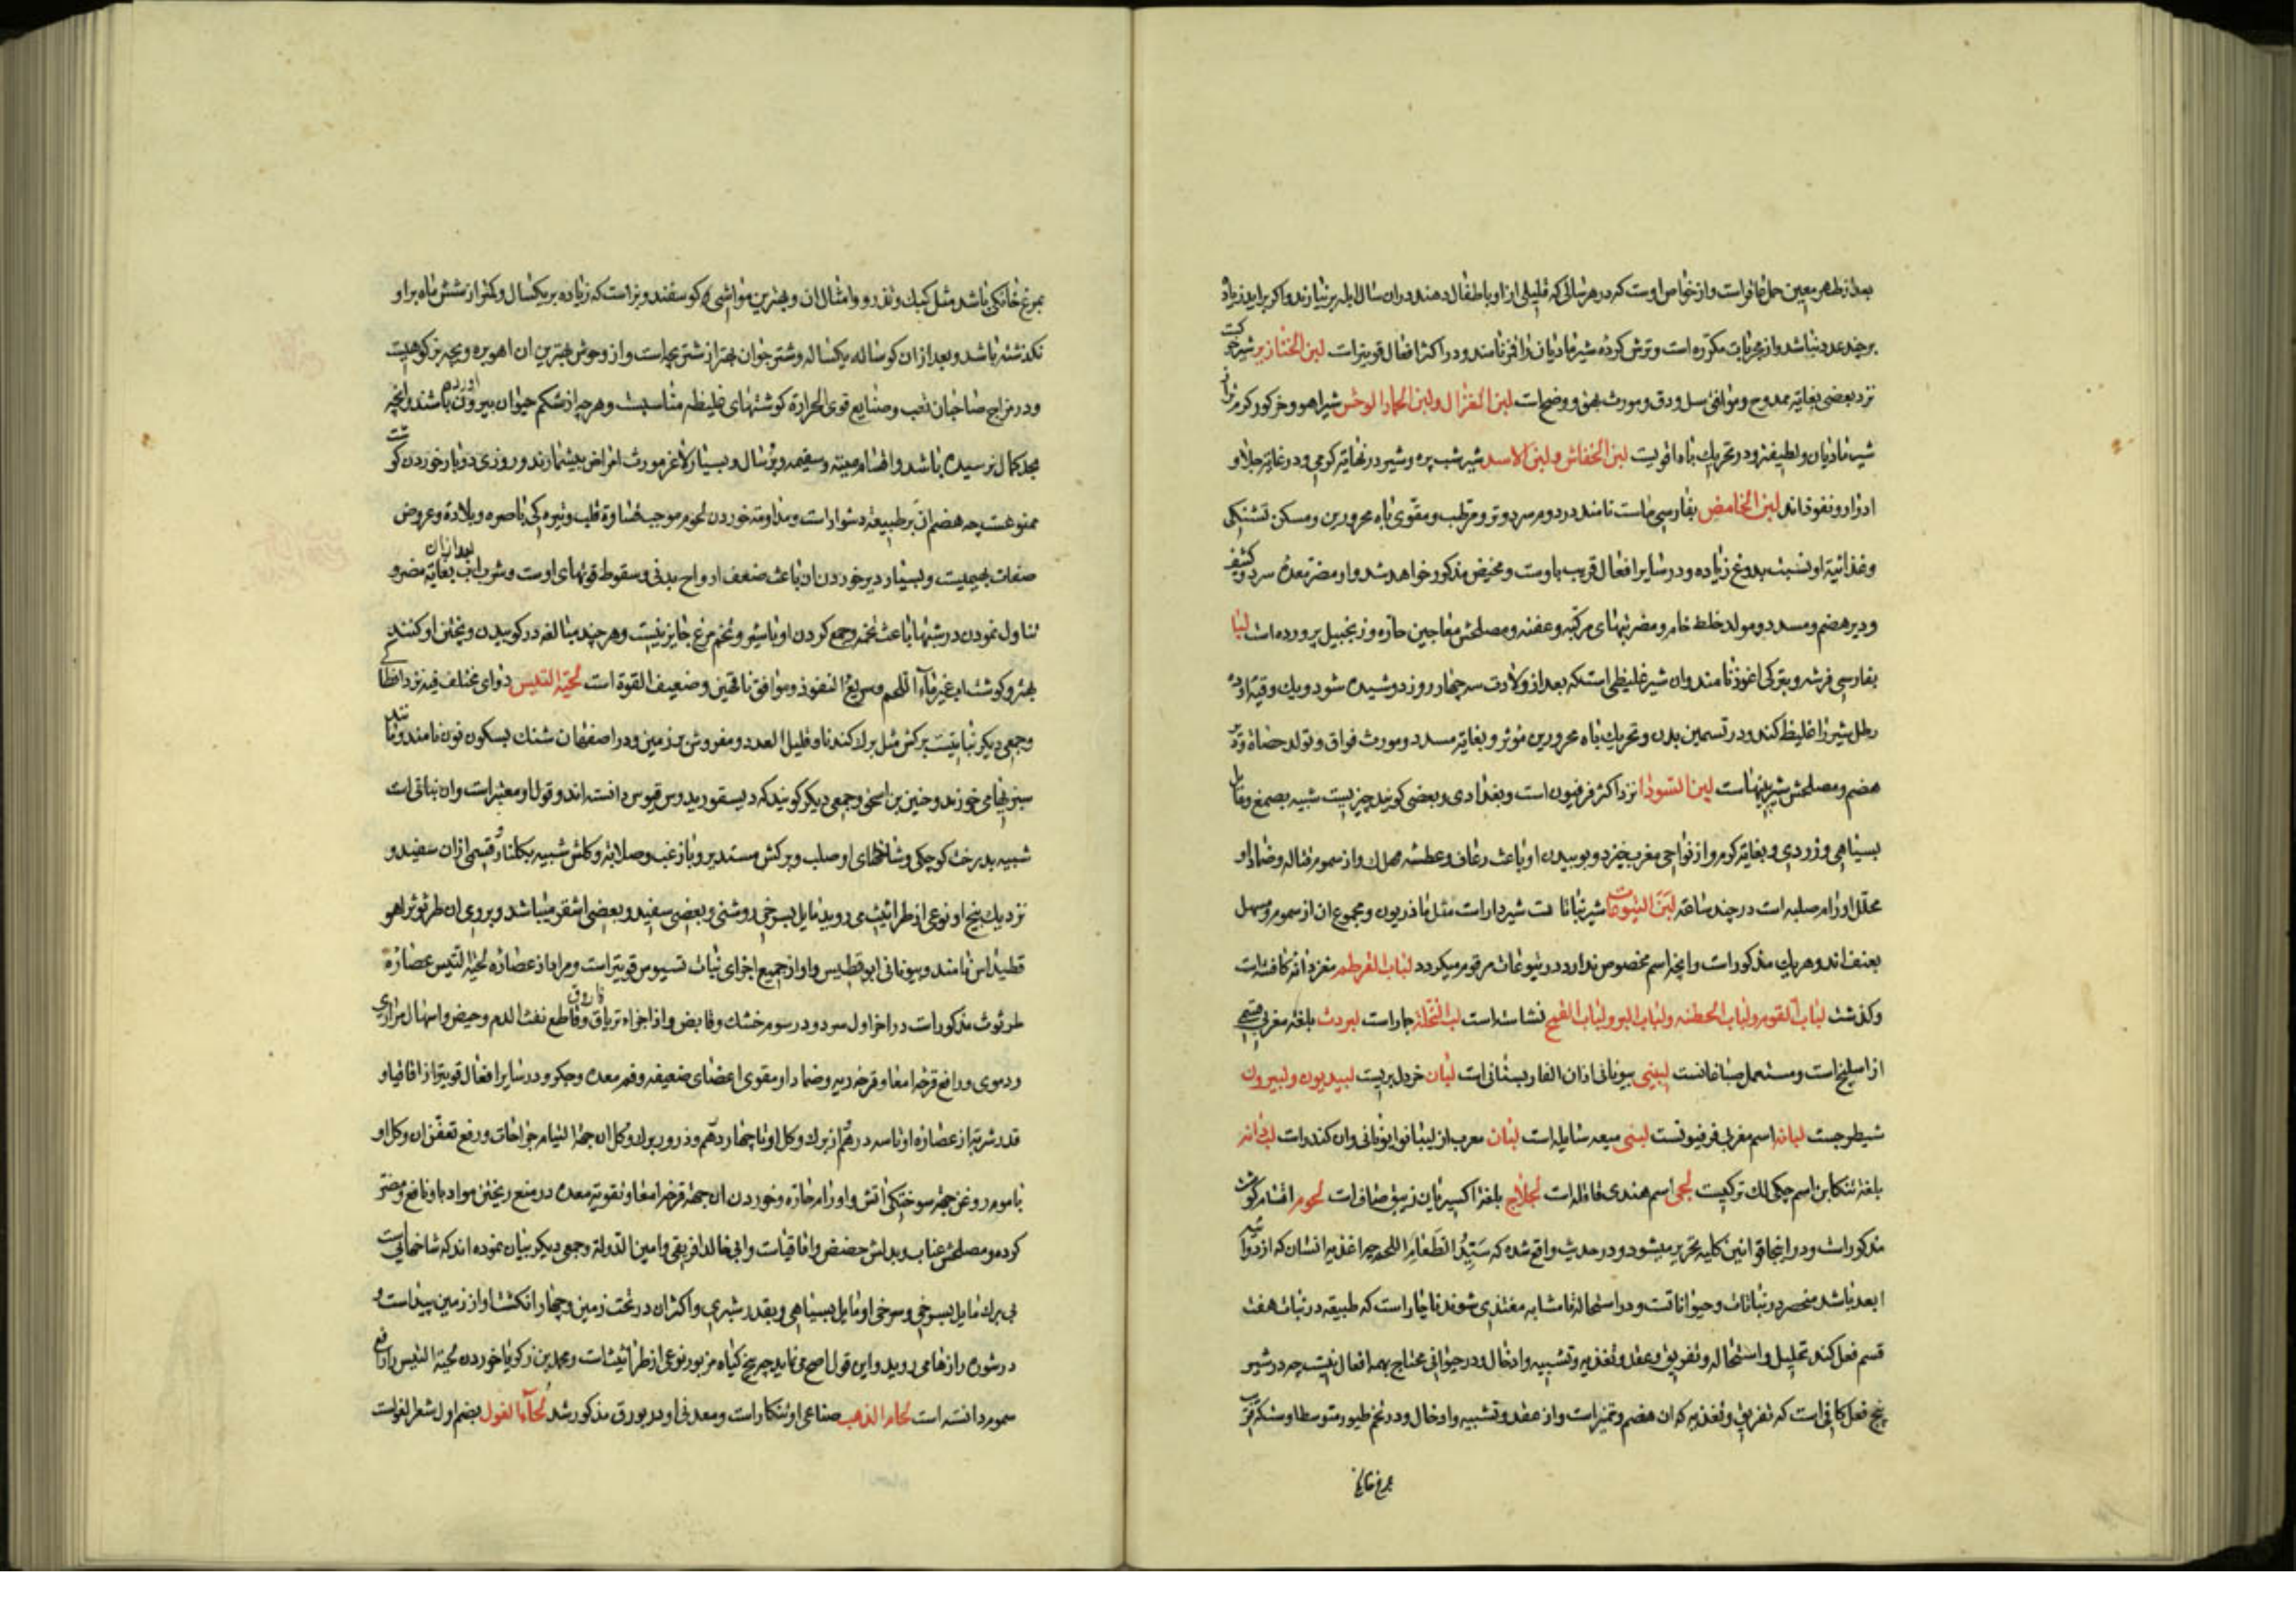 بعد از طهر معین حمل عاقر است و از خواص اوست که در هر سالی که قلیلی از او باطفال دهند در ان سال ابله بر نیارند و اکر براید زیاد
بر چند عدد نباشد و از مجربات مکرره است و ترش کرده شیر مادیان را قمز نامند و در اکثر افعال قویتر است لبن الخنازیر شیر خوکست
نزد بعضی بغایة ممدوح و موافق سل و دق و مورث بهق و وضح است لبن الغزال و لبن الحمار الوحش شیر اهو و خر کور کرمتر از
شیر مادیان و لطیفتر و در تحریک باه اقویست لبن الخفاش و لبن الاسد شیر شب پره و شیر در نهایة کرمی و در غایة جلا و
ادرار و نفوذ اند لبن الحامض بفارسی ماست نامند در دوم سرد و تر و مرطب و مقوی باه محرورین و مسکن تشنکی
و غذائیة او نسبت بدوغ زیاده و در سایر افعال قریب باوست و مخیض مذکور خواهد شد و او مضر معده سرد و کثیف
و دیر هضم و مسدد و مولد خلط خام و مضر تبهای مرکبه و عفنه و مصلحش معاجین حاره و زنجبیل پرورده است لبا
بفارسی فرشه و بترکی اغوز نامند و ان شیر غلیظی است که بعد از ولادت سه چهار روز دوشیده شود و یک وقیه او ده
رطل شیر را غلیظ کند و در تسمین بدن و تحریک باه محرورین موثر و بغایة مسدد و مورث فواق و تولد حصاة و
هضم و مصلحش شیرینیهاست لبن السودا نزد اکثر فرفیون است و بغدادی و بعضی کویند چیزیست شبیه بصمغ و مایل
بسیاهی و زردی و بغایة کرم و از نواحی مغرب خیزد و بوییدن او باعث رعاف و عطسه مهلک و از سموم قتاله و ضماد او
محلل اورام صلبه است در چند ساعة لبن الیتوعات شیر نباتات شیردار است مثل ماذریون و مجموع ان از سموم و مسهل
بعنف اند و هر یک مذکور است و انچه اسم مخصوص ندارد در یتوعات مرقوم میکردد لباب القرطم مغز دانه کافشه است
و کذشت لباب القوم و لباب الحطنه و لباب البر و لباب القمح نشاسته است لب النخلة جمار است لبردث بلغة مغربی قسمی
از اسلیخ است و مستعمل صباغانست لبینی بیونانی اذان الفار بستانی است لبان خردل بریست لبیدیون و لبیرون
شیطرجست لبانه اسم مغربی فرفیونست لبنی میعه سایله است لبنان معرب از لیبانوا یونانی و ان کندر است لب دانه
بلغة تنکابن اسم چکی لک ترکیست لجی اسم هندی قاقله است لجلاج بلغة اکسیریان زیبق صاف است لحوم اقسام کوشت
مذکور است و در اینجا قوانین کلیه تحریر میشود و در حدیث واقع شده که سَیِّدُ الطَّعَامِ اللحم چه اغذیه انسان که از دوائیه
ابعد باشد منحصر در نباتات و حیواناتست و در استحاله تا مشابه مغتذی شوند ناچار است که طبیعة در نبات هفت
قسم فعل کند تحلیل و استحاله و تفریق و عقد و تغذیه و تشبیه و ادخال و در حیوانی محتاج بهمه افعال نیست چه در شیر
پنج فعل کافی است که تفریق و تغذیه که ان هضم و تمیز است و از عقد و تشبیه و ادخال و در تخم طیور متوسط او سه که قریب
بمرغ خانکی
بمرغ خانکی باشد مثل کبک و تذرو و امثال ان و بهترین مواشی کوسفند و بز است که زیاده بر یکسال و کمتر از شش ماه بر او
نکذشته باشد و بعد از ان کوساله یکساله و شتر جوان بهتر از شتر بچه است و از وحوش بهترین ان اهو بره و بچه بز کوهیست
و در مزاج صاحبان تعب و صنایع قوی الحرارة کوشتهای غلیظه مناسبست و هر چه از شکم حیوان بیرون اورده باشند و انچه
بحد کمال نرسیده باشد و اقسام میته و سقیمه و پرسال و بسیار لاغر مورث امراض بیشمارند و روزی دو بار خوردن کوشت
ممنوعست چه هضم ان بر طبیعة دشوار است و مداومة خوردن لحوم موجب قساوة قلب و تیره کی باصره و بلادة و عروض
صفات بهیمیست و بسیار دیر خوردن ان باعث ضعف ارواح بدنی و سقوط قوتهای اوست و شرب اب بعد از ان بغایة مضر و
تناول نمودن در شبها باعث تخمه و جمع کردن او با شیر و تخم مرغ جایز نیست و هر چند مبالغه در کوبیدن و پختن او کنند
بهتر و کوشتاب غیر ماء اللحم و سریع النفوذ و موافق ناقهین و ضعیف القوة است لحیة التیس دوای مختلف فیه نزد انطاکی
و جمعی دیکر نباتیست برکش مثل برک کندنا و قلیل العدد و مفروش بر زمین و در اصفهان شنک بسکون نون نامند و مانند
سبزیهای خورند و حنین بن اسحق و جمعی دیکر کویند که دیسقوریدوس قیوس دانسته اند و قول او معتبر است و ان نباتی است
شبیه بدرخت کوچکی و شاخهای او صلب و برکش مستدیر و با زغب و صلابة و کلش شبیه بکلنار و قسمی از ان سفید و
نزدیک بیخ او نوعی از طراثیث می روید مایل بسرخی روشنی و بعضی سفید و بعضی اشقر میباشد و بروی ان طرثوث را هو
قطیداس نامند و بیونانی ابوقطیس و او از جمیع اجزای نبات قسیوس قویتر است و مراد از عصاره لحیة التیس عصاره
طرثوث مذکور است در اخر اول سرد و در سوم خشک و قابض و از اجزاء تریاق فاروق و قاطع نفث الدم و حیض و اسهال مراری
و دموی و رافع قرحه امعا و قرحه ریه و ضماد او مقوی اعضای ضعیفه و فم معده و جکر و در سایر افعال قویتر از اقاقیا و
قدر شربة از عصاره او تا سه درهم و از برک و کل او تا چهار درهم و ذرور برک و کل ان جهة التیام جراحات و رفع تعفن ان و کل او
با موم روغن جهة سوختکی اتش و اورام حاره و خوردن ان جهة قرحه امعا و تقویة معده و منع ریختن مواد باو نافع و مضر
کرده و مصلحش عناب و بدلش حضض و اقاقیاست و ابی خالد افریقی و امین الدولة و جمعی دیکر بیان نموده اند که شاخهائیست
بی برک مایل بسرخی و سرخی او مایل بسیاهی و بقدر شبری و اکثر ان در تحت زمین و چهار انکشت او از زمین پیداست و
در شوره زارها می روید و این قول اصح می نماید چه بیخ کیاه مزبور نوعی از طراثیث است و محمد بن زکریا خوردن لحیة التیس را رافع
سموم دانسته است لحام الذهب صناعی او تنکار است و معدنی او در بورق مذکور شد لحاء الغول بضم اول شعر الغولست